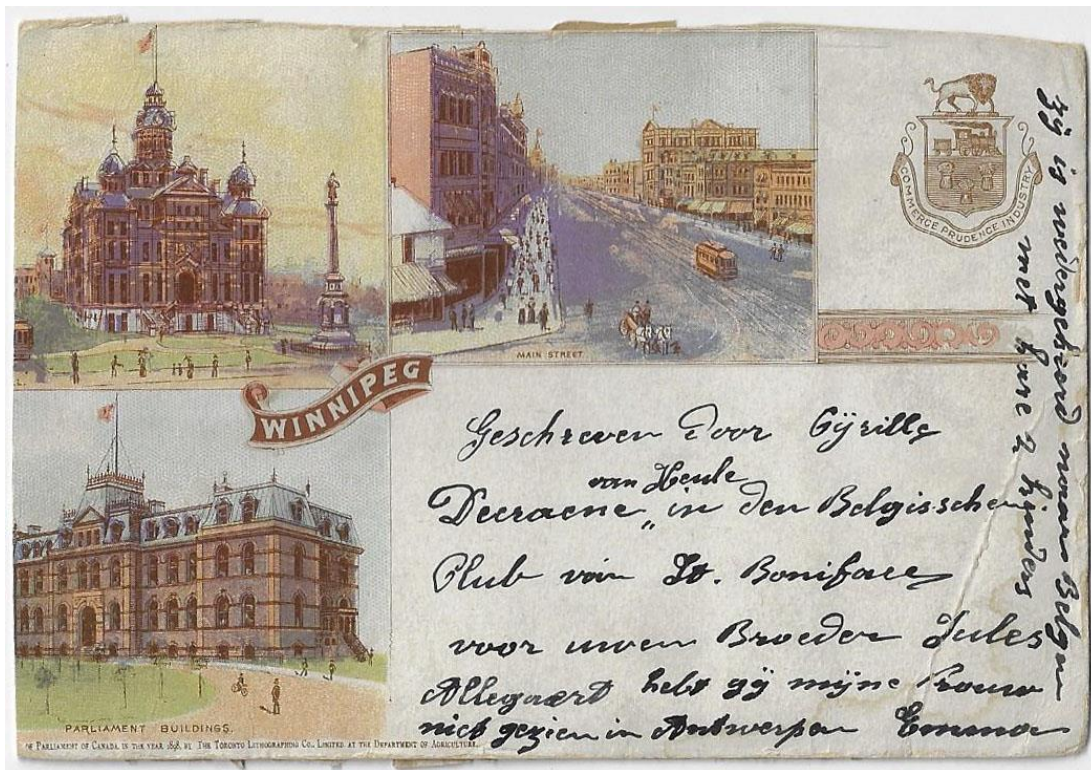 COMMERCE PRUDENCE INDUSTRY
MAIN STREET
WINNIPEG
PARLIAMENT BUILDINGS.
OF PARLIAMENT OF CANADA IN THE YEAR 1898, BY THE TORONTO LITHOGRAPHING CO., LIMITED, AT THE DEPARTMENT OF AGRICULTURE.
Geschreven door Cÿrille
van Heule
Decraene " in den Belgischen
Club van St. Boniface
voor uwen Broeder Jules
Allegaert hebt gÿ mÿne Vrouw
niet gezien in Antwerpen Emma
zÿ is wedergekeerd naar Belgen
met hare 2 kinders